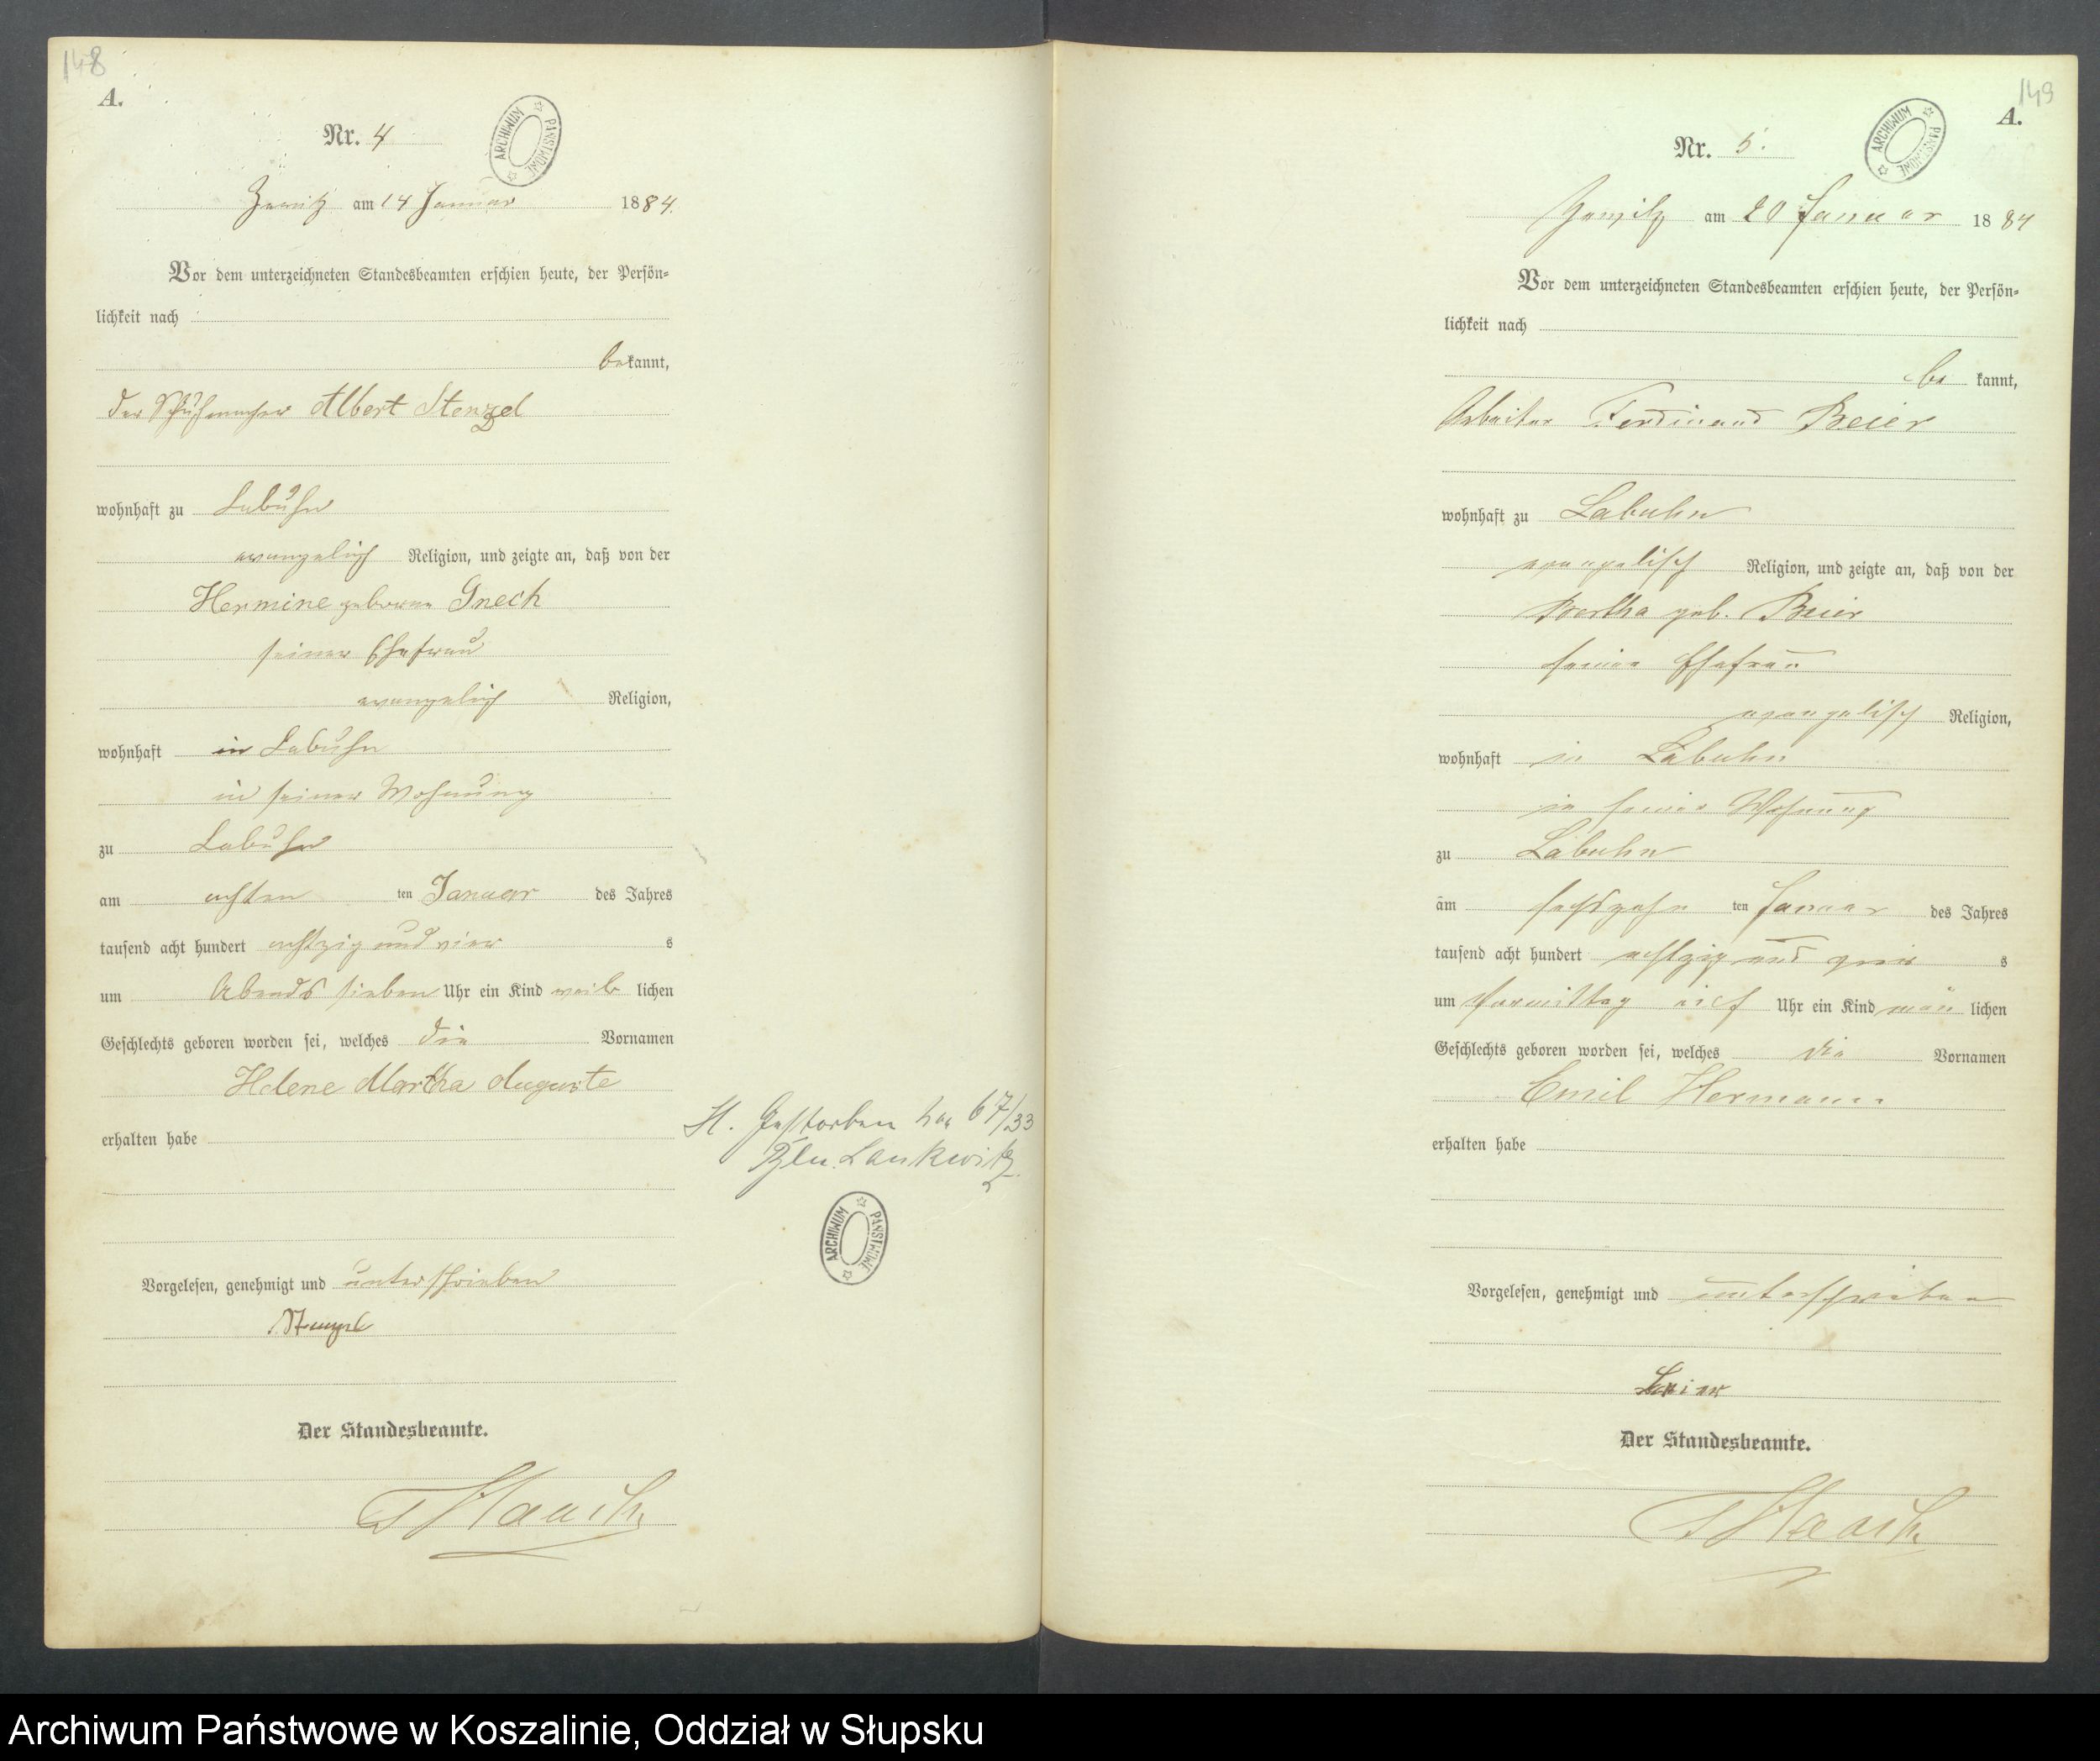 148
A.
Nr. 4
ARCHIWUM PAŃSTWOWE
Zewitz am 14 Januar 1884.
Vor dem unterzeichneten Standesbeamten erschien heute, der Persön-
lichkeit nach
bekannt,
der Schuhmacher Albert Stenzel
wohnhaft zu Labuhn
evangelisch Religion, und zeigte an, daß von der
Hermine geborene Grech
seiner Ehefrau
evangelisch Religion,
wohnhaft in Labuhn
in seiner Wohnung
zu Labuhn
am achten ten Januar des Jahres
tausend acht hundert achtzig und vier s
um Abends sieben Uhr ein Kind weib lichen
Geschlechts geboren worden sei, welches die Vornamen
Helene Martha Auguste
erhalten habe
H. Gestorben 67/33
Bln. Lankwitz.
ARCHIWUM PAŃSTWOWE
Vorgelesen, genehmigt und unterschrieben
Stenzel
Der Standesbeamte.
149
A.
Nr. 5.
ARCHIWUM PAŃSTWOWE
Zewitz am 20 Januar 1884
Vor dem unterzeichneten Standesbeamten erschien heute, der Persön-
lichkeit nach
be kannt,
Arbeiter Ferdinand Beier
wohnhaft zu Labuhn
evangelisch Religion, und zeigte an, daß von der
Bertha geb. Beier
seiner Ehefrau
evangelisch Religion,
wohnhaft in Labuhn
in seiner Wohnung
zu Labuhn
am sechszehn ten Januar des Jahres
tausend acht hundert achtzig und vier s
um Vormittag elf Uhr ein Kind män lichen
Geschlechts geboren worden sei, welches die Vornamen
Emil Hermann
erhalten habe
Vorgelesen, genehmigt und unterschrieben
Beier
Der Standesbeamte.
Archiwum Państwowe w Koszalinie, Oddział w Słupsku